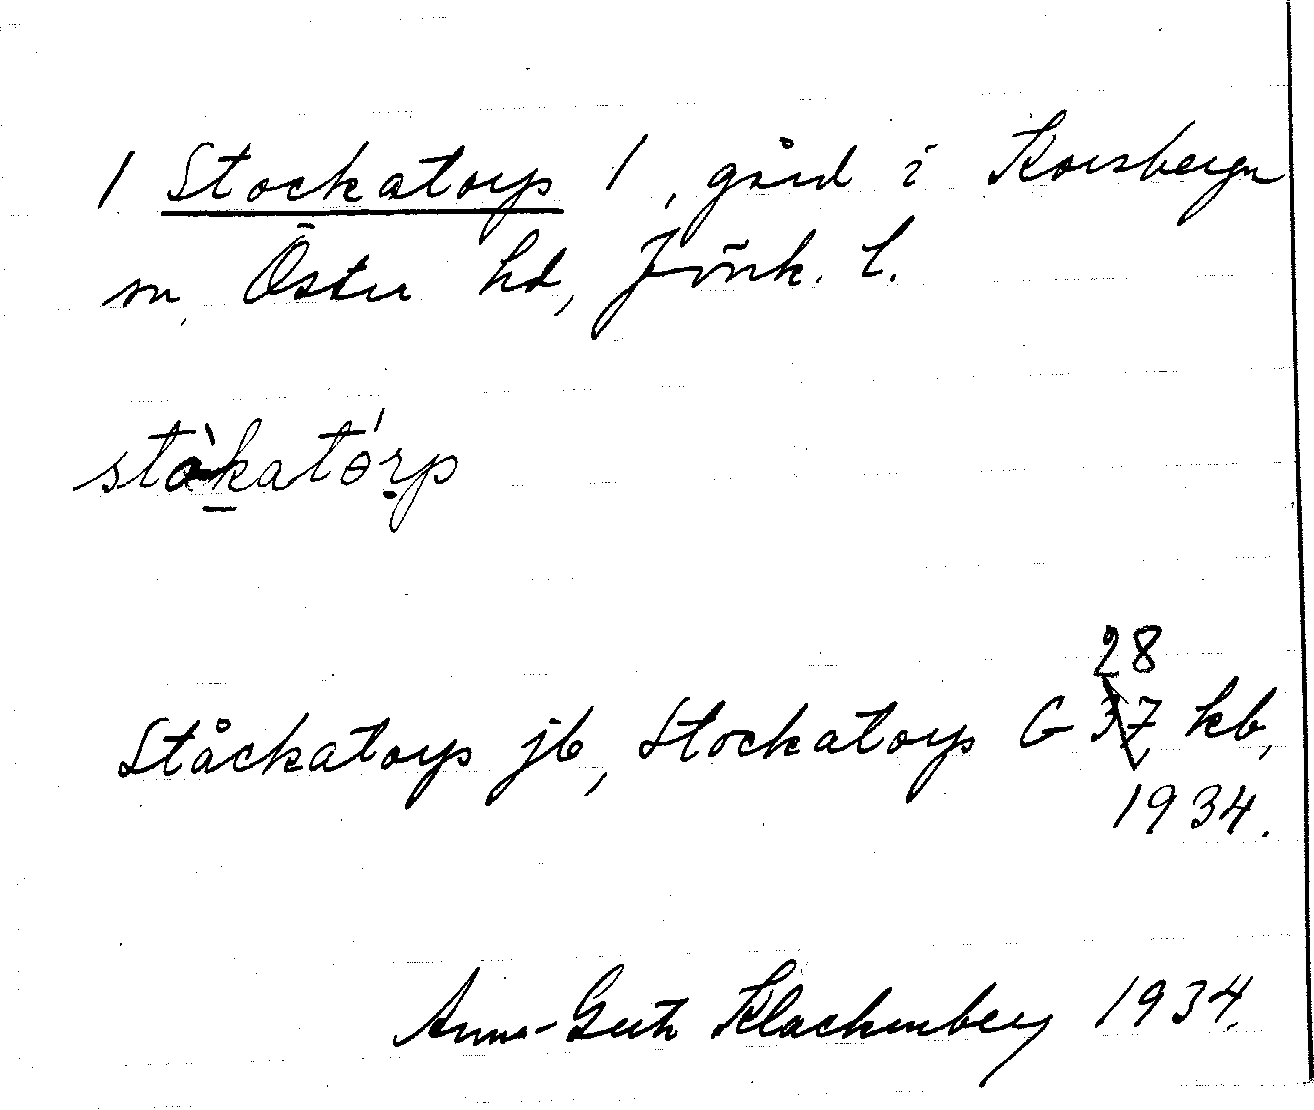 / Stockatorp /, gård i Korsberga
sn, Östra hd, Jönk. l.
stòkatórp
Ståckatorp jb, Stockatorp G 28 37 kb,
1934.
Anna-Greta Klackenberg 1934.